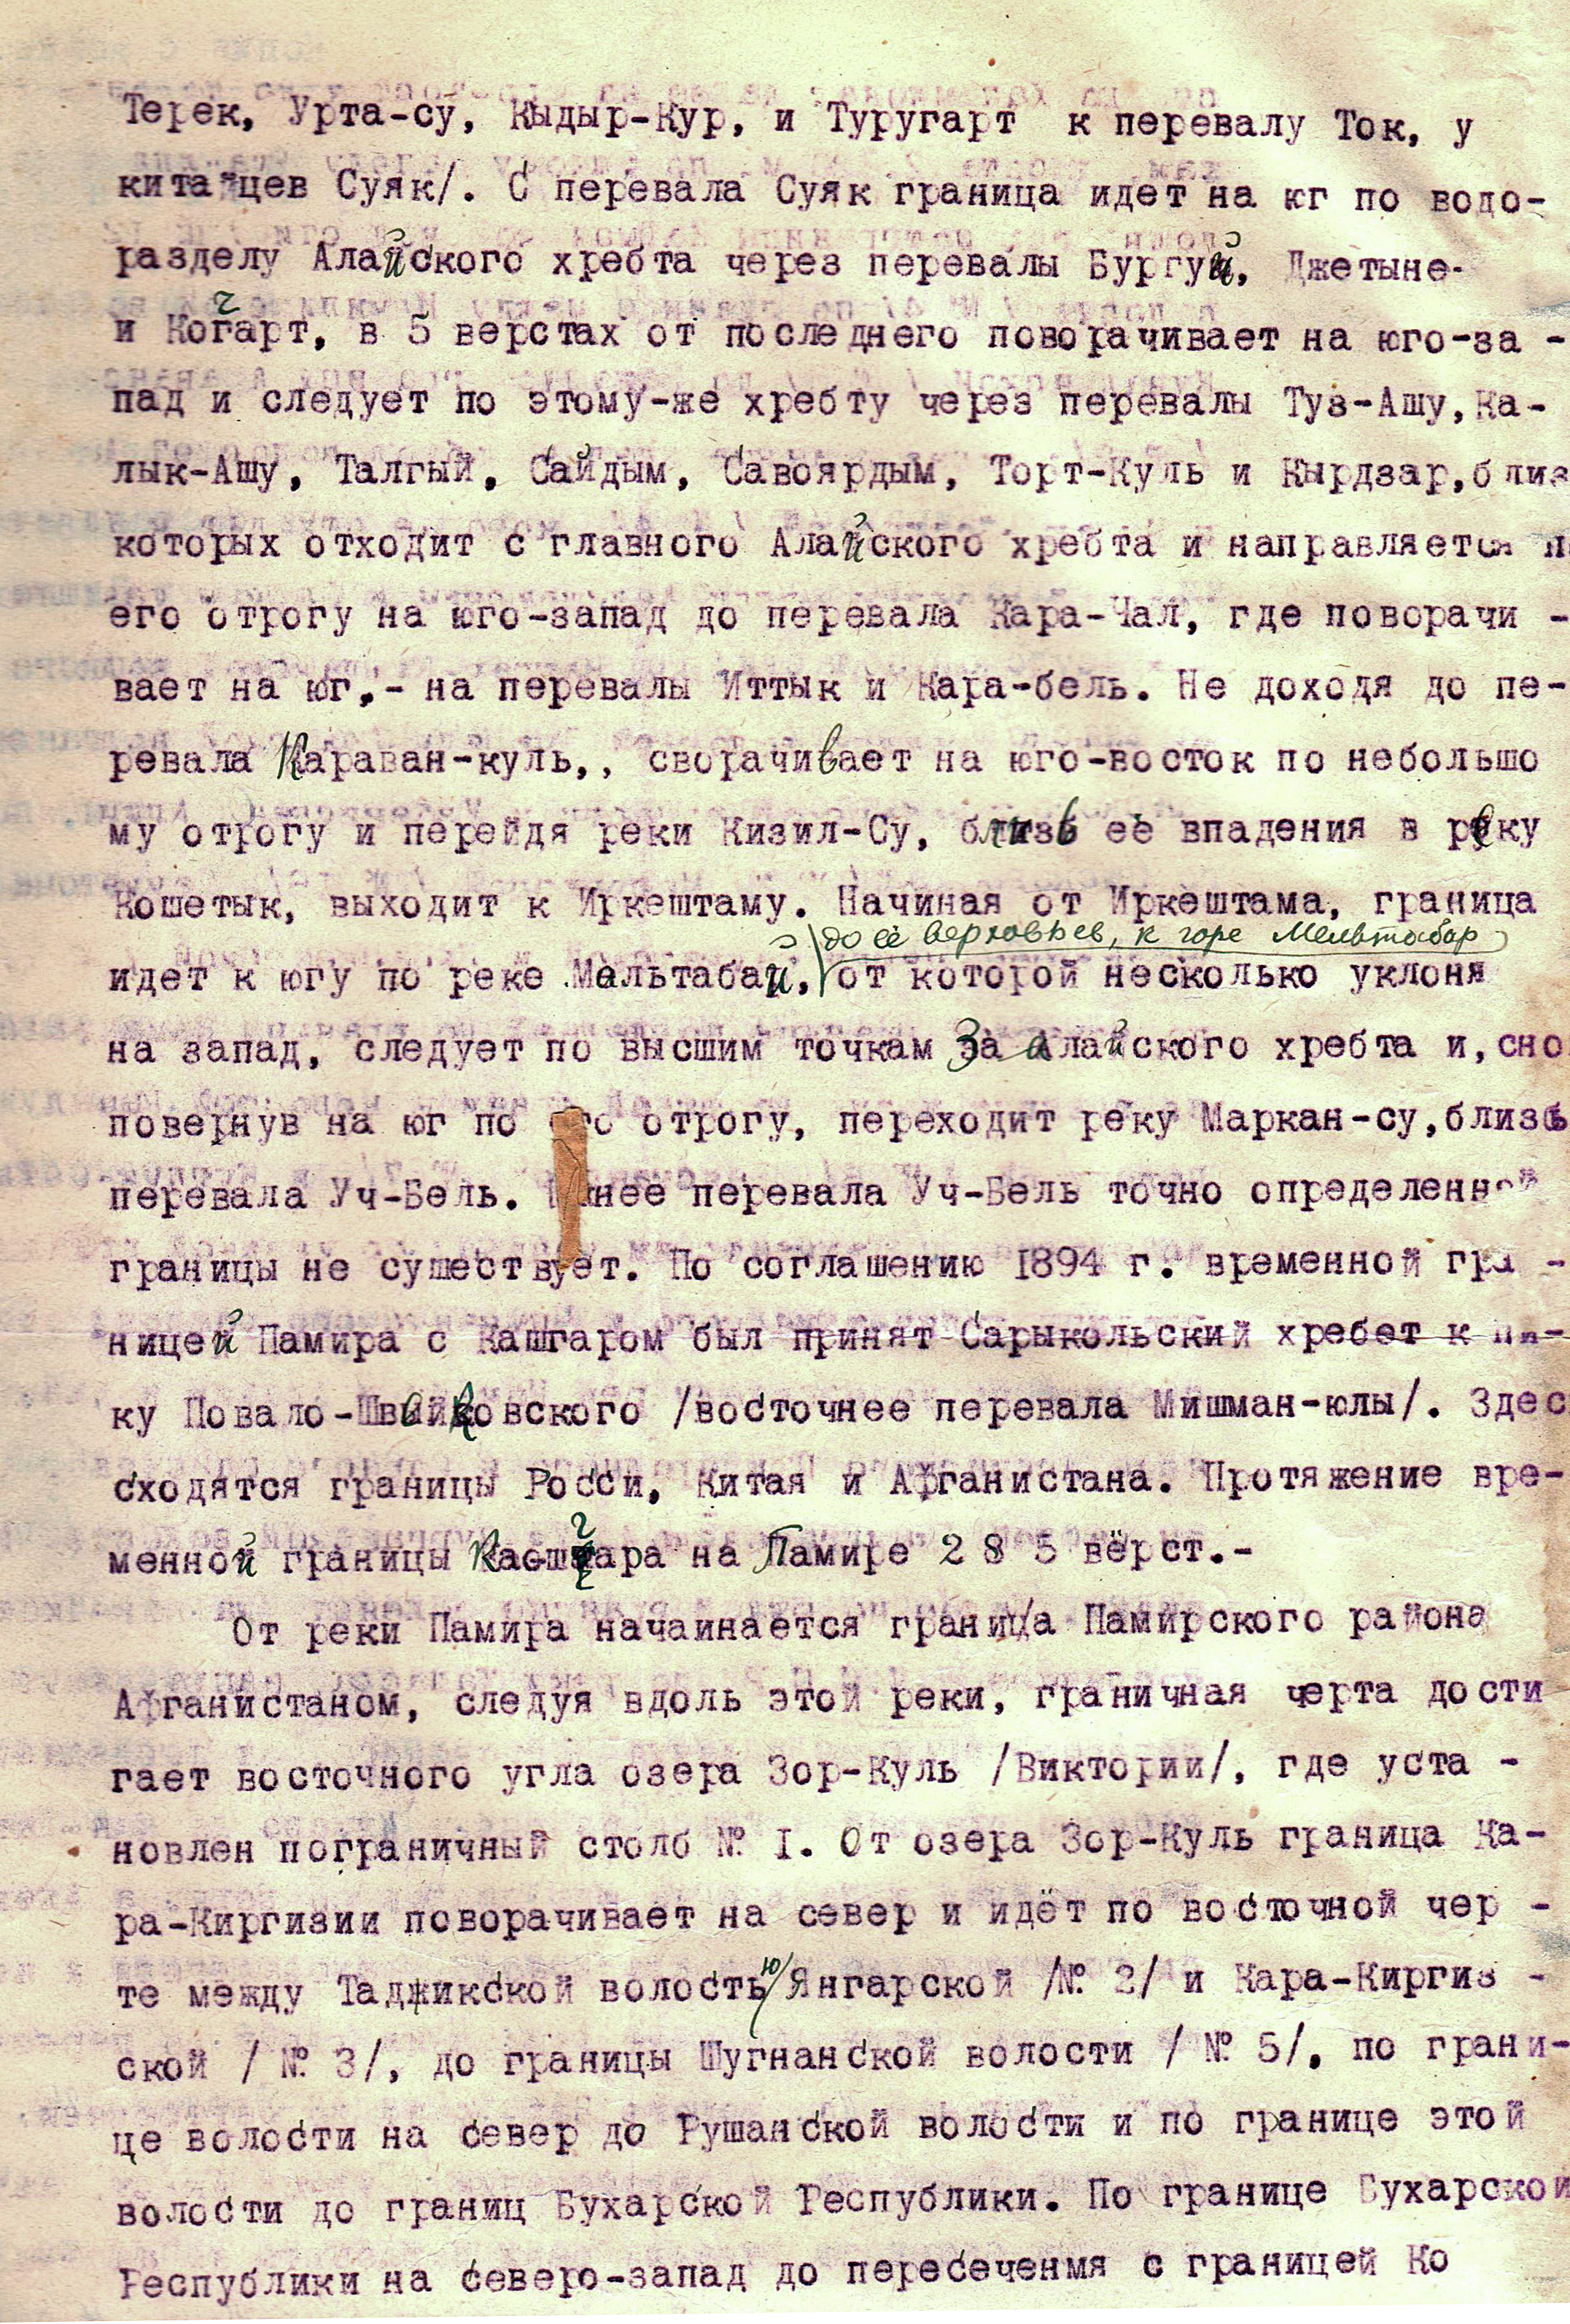 Терек, Урта-су, Кыдыр-Кур, и Туругарт к перевалу Ток, у
китайцев Суяк/. С перевала Суяк граница идет на юг по водо-
разделу Алайского хребта через перевалы Бургуй, Джетыне-
и Когарт, в 5 верстах от последнего поворачивает на юго-за -
пад и следует по этому-же хребту через перевалы Туз-Ашу, Ка-
лык-Ашу, Талгый, Сайдым, Савоярдым, Торт-Куль и Кырдзар, близ
которых отходит с главного Алайского хребта и направляется п
его отрогу на юго-запад до перевала Кара-Чал, где поворачи -
вает на юг,- на перевалы Иттык и Кара-бель. Не доходя до пе-
ревала Караван-куль,, сворачивает на юго-восток по небольшо
му отрогу и перейдя реки Кизил-Су, близь ее впадения в реку
Кошетык, выходит к Иркештаму. Начиная от Иркештама, граница
до её верховьев, к горе Мельтабар
идет к югу по реке Мальтабай, от которой несколько уклоня
на запад, следует по высшим точкам За алайского хребта и, сно
повернув на юг по его отрогу, переходит реку Маркан-су, близь
перевала Уч-Бель. нее перевала Уч-Бель точно определенной
границы не существует. По соглашению 1894 г. временной гра -
ницей Памира с Кашгаром был принят Сарыкольский хребет к пи-
ку Повало-Швейковского /восточнее перевала Мишман-юлы/. Здес
сходятся границы Росси, Китая и Афганистана. Протяжение вре-
менной границы Кашгара на Памире 2 8 5 вёрст.-
От реки Памира начаинается граница Памирского района
Афганистаном, следуя вдоль этой реки, граничная черта дости
гает восточного угла озера Зор-Куль /Виктории/, где уста -
новлен пограничный столб № I. От озера Зор-Куль граница Ка-
ра-Киргизии поворачивает на север и идёт по восточной чер -
те между Таджикской волостью/Янгарской /№ 2/ и Кара-Киргиз -
ской / № 3/, до границы Шугнанской волости / № 5/, по грани-
це волости на север до Рушанской волости и по границе этой
волости до границ Бухарской Республики. По границе Бухарской
Республики на северо-запад до пересеченмя с границей Ко